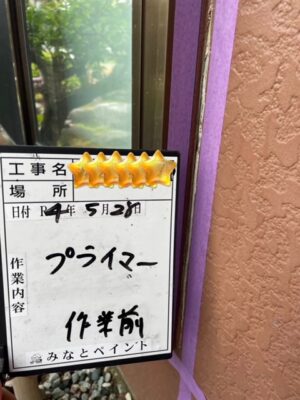 工事名
場所
日付 R4年 5月28日
作業内容
プライマー
作業前
みなとペイント